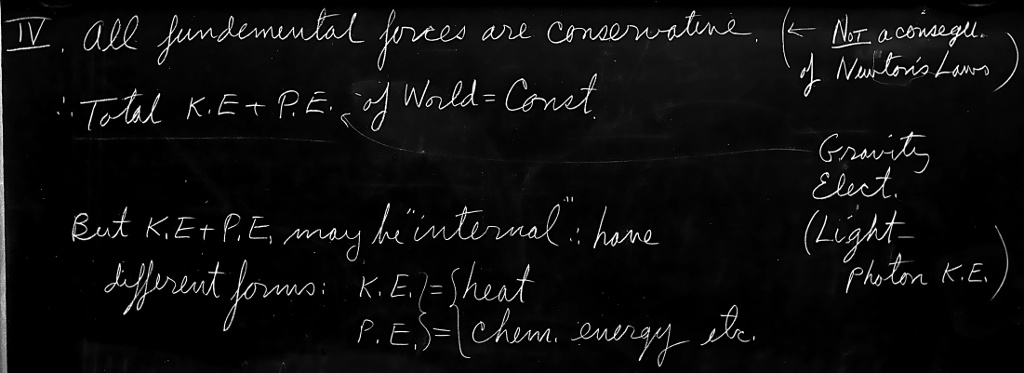 IV. All fundemental forces are conservative. (← NOT a consequ.
of Newton's Laws)
∴ Total K.E + P.E. of World = Const.
Gravity
Elect.
(Light-
photon K.E.)
But K.E + P.E. may be "internal" ∴ have
different forms: K.E.} = {heat
P.E.} = {chem. energy etc.